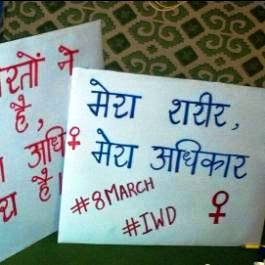 रतों ने
है,
अधि♀
है।
मेरा शरीर,
मेरा अधिकार
#8MARCH
#IWD ♀